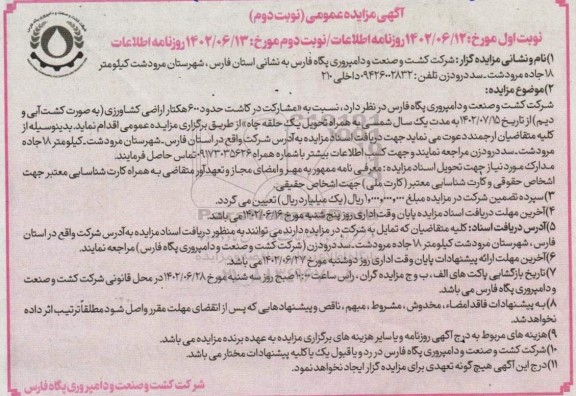 آگهی مزایده عمومی (نوبت دوم)
نوبت اول مورخ: ۱۴۰۲/۰۶/۱۲ روزنامه اطلاعات/نوبت دوم مورخ: ۱۴۰۲/۰۶/۱۳ روزنامه اطلاعات
۱)نام و نشانی مزایده گزار: شرکت کشت و صنعت و دامپروری پگاه فارس به نشانی استان فارس، شهرستان مرودشت کیلومتر
۱۸ جاده مرودشت ـ سد درودزن تلفن: ۰۹۴۲۶۰۰۲۸۳۲ داخلی ۲۱۰
۲)موضوع مزایده:
شرکت کشت و صنعت و دامپروری پگاه فارس در نظر دارد، نسبت به «مشارکت در کاشت حدود ۶۰۰ هکتار اراضی کشاورزی (به صورت کشت آبی و
دیم) از تاریخ ۱۴۰۲/۰۷/۱۵ به مدت یک سال شمسی به همراه تحویل یک حلقه چاه» از طریق برگزاری مزایده عمومی اقدام نماید. بدینوسیله از
کلیه متقاضیان ارجمند دعوت می نماید جهت دریافت اسناد مزایده به آدرس شرکت واقع در استان فارس ـ شهرستان مرودشت ـ کیلومتر ۱۸ جاده
مرودشت ـ سد درودزن مراجعه نمایند و جهت کسب اطلاعات بیشتر با شماره همراه ۰۹۱۷۳۰۳۵۶۲۶ تماس حاصل فرمایند.
مدارک مورد نیاز جهت تحویل اسناد مزایده: معرفی نامه ممهور به مهر و امضای مجاز و تعهدآور متقاضی به همراه کارت شناسایی معتبر جهت
اشخاص حقوقی و کارت شناسایی معتبر (کارت ملی) جهت اشخاص حقیقی.
۳) سپرده تضمین شرکت در مزایده مبلغ ۱،۰۰۰،۰۰۰،۰۰۰ ریال (یک میلیارد ریال) تعیین می گردد.
۴)آخرین مهلت دریافت اسناد مزایده پایان وقت اداری روز پنج شنبه مورخ ۱۴۰۲/۰۶/۱۶ می باشد.
۵)آدرس دریافت اسناد: کلیه متقاضیان که تمایل به شرکت در مزایده دارند می توانند به منظور دریافت اسناد مزایده به آدرس شرکت واقع در استان
فارس، شهرستان مرودشت کیلومتر ۱۸ جاده مرودشت ـ سد درودزن (شرکت کشت و صنعت و دامپروری پگاه فارس) مراجعه نمایند.
۶)آخرین مهلت ارائه پیشنهادات پایان وقت اداری روز دوشنبه مورخ ۱۴۰۲/۰۶/۲۷ می باشد.
۷)تاریخ بازگشایی پاکت های الف، ب و ج مزایده گران، راس ساعت ۱۰:۰۰ صبح روز سه شنبه مورخ ۱۴۰۲/۰۶/۲۸ در محل قانونی شرکت کشت و صنعت
و دامپروری پگاه فارس می باشد.
۸)به پیشنهادات فاقد امضاء، مخدوش، مشروط، مبهم، ناقص و پیشنهادهایی که پس از انقضای مهلت مقرر واصل شود مطلقاً ترتیب اثر داده
نخواهد شد.
۹)هزینه های مربوط به درج آگهی روزنامه و یا سایر هزینه های برگزاری مزایده به عهده برنده مزایده می باشد.
۱۰)شرکت کشت و صنعت و دامپروری پگاه فارس در رد و یا قبول یک یا کلیه پیشنهادات مختار می باشد.
۱۱)درج این آگهی هیچ گونه تعهدی برای مزایده گزار ایجاد نخواهد نمود.
شرکت کشت و صنعت و دامپروری پگاه فارس